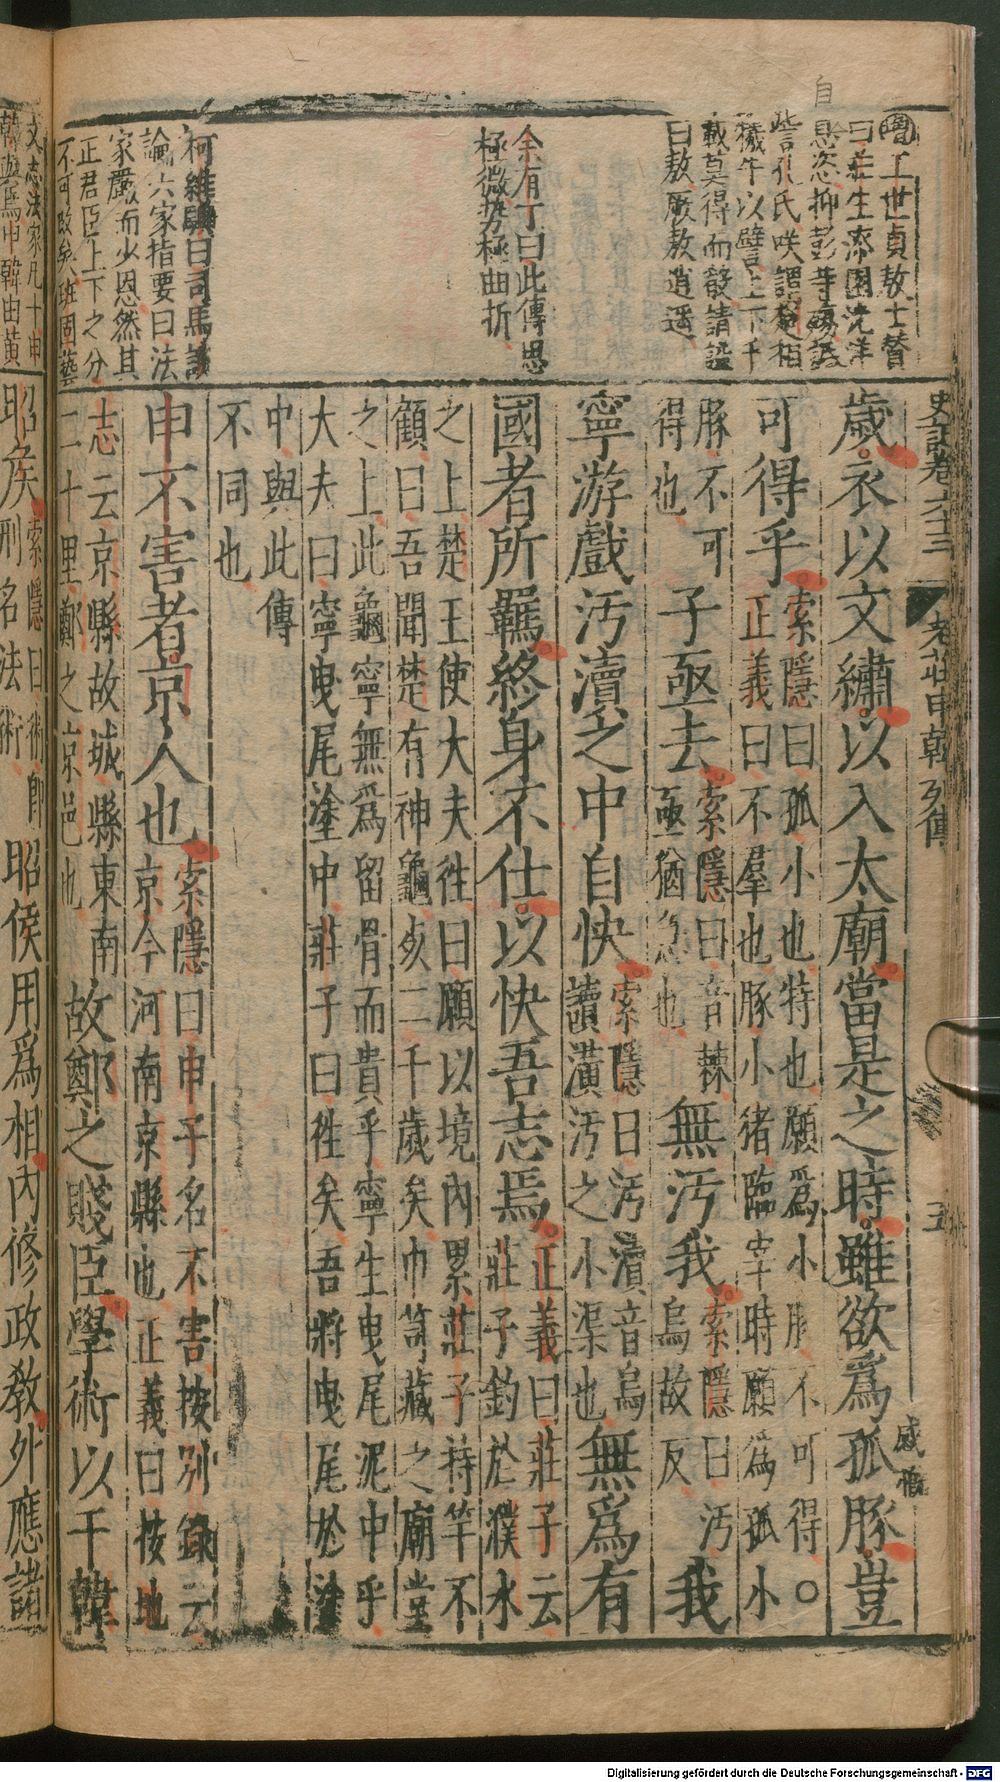 增王世貞敖士贊
曰莊生漆園洸洋
自恣抑彭等殤詆
訾孔氏咲謂楚相
犧牛以譬上下千
載莫得而殽請諡
曰敖厥敖逍遥
余有丁曰此傳思
極微勢極曲折
柯維騏曰司馬談
論六家指要曰法
家嚴而少恩然其
正君臣上下之分
不可改矣班固藝
文志法家凡十申
韓與焉申韓由黃
自
史記卷六十三
老莊申韓列傳
五
歲衣以文繡以入太廟當是之時雖欲爲孤豚豈
可得乎
索隱曰孤小也特也願爲小豚不可得○
正義曰不羣也豚小猪臨宰時願爲孤小
豚不可
得也
子亟去
索隱曰音棘
亟猶急也
無汚我
索隱曰汚
烏故反
我
寧游戲汚瀆之中自快
索隱曰汚瀆音烏
讀潢汚之小渠也
無爲有
國者所羈終身不仕以快吾志焉
正義曰莊子云
莊子釣於濮水
之上楚王使大夫徃曰願以境內累莊子持竿不
顧曰吾聞楚有神龜死二千歲矣巾笥藏之廟堂
之上此龜寧無爲留骨而貴乎寧生曳尾泥中乎
大夫曰寧曳尾塗中莊子曰徃矣吾將曳尾於塗
中與此傳
不同也
申不害者京人也
索隱曰申子名不害按別錄云
京今河南京縣也正義曰按地
志云京縣故城縣東南
二十里鄭之京邑也
故鄭之賤臣學術以干韓
昭矦
索隱曰術即
刑名法術
昭侯用爲相內修政教外應諸
Digitalisierung gefördert durch die Deutsche Forschungsgemeinschaft - DFG